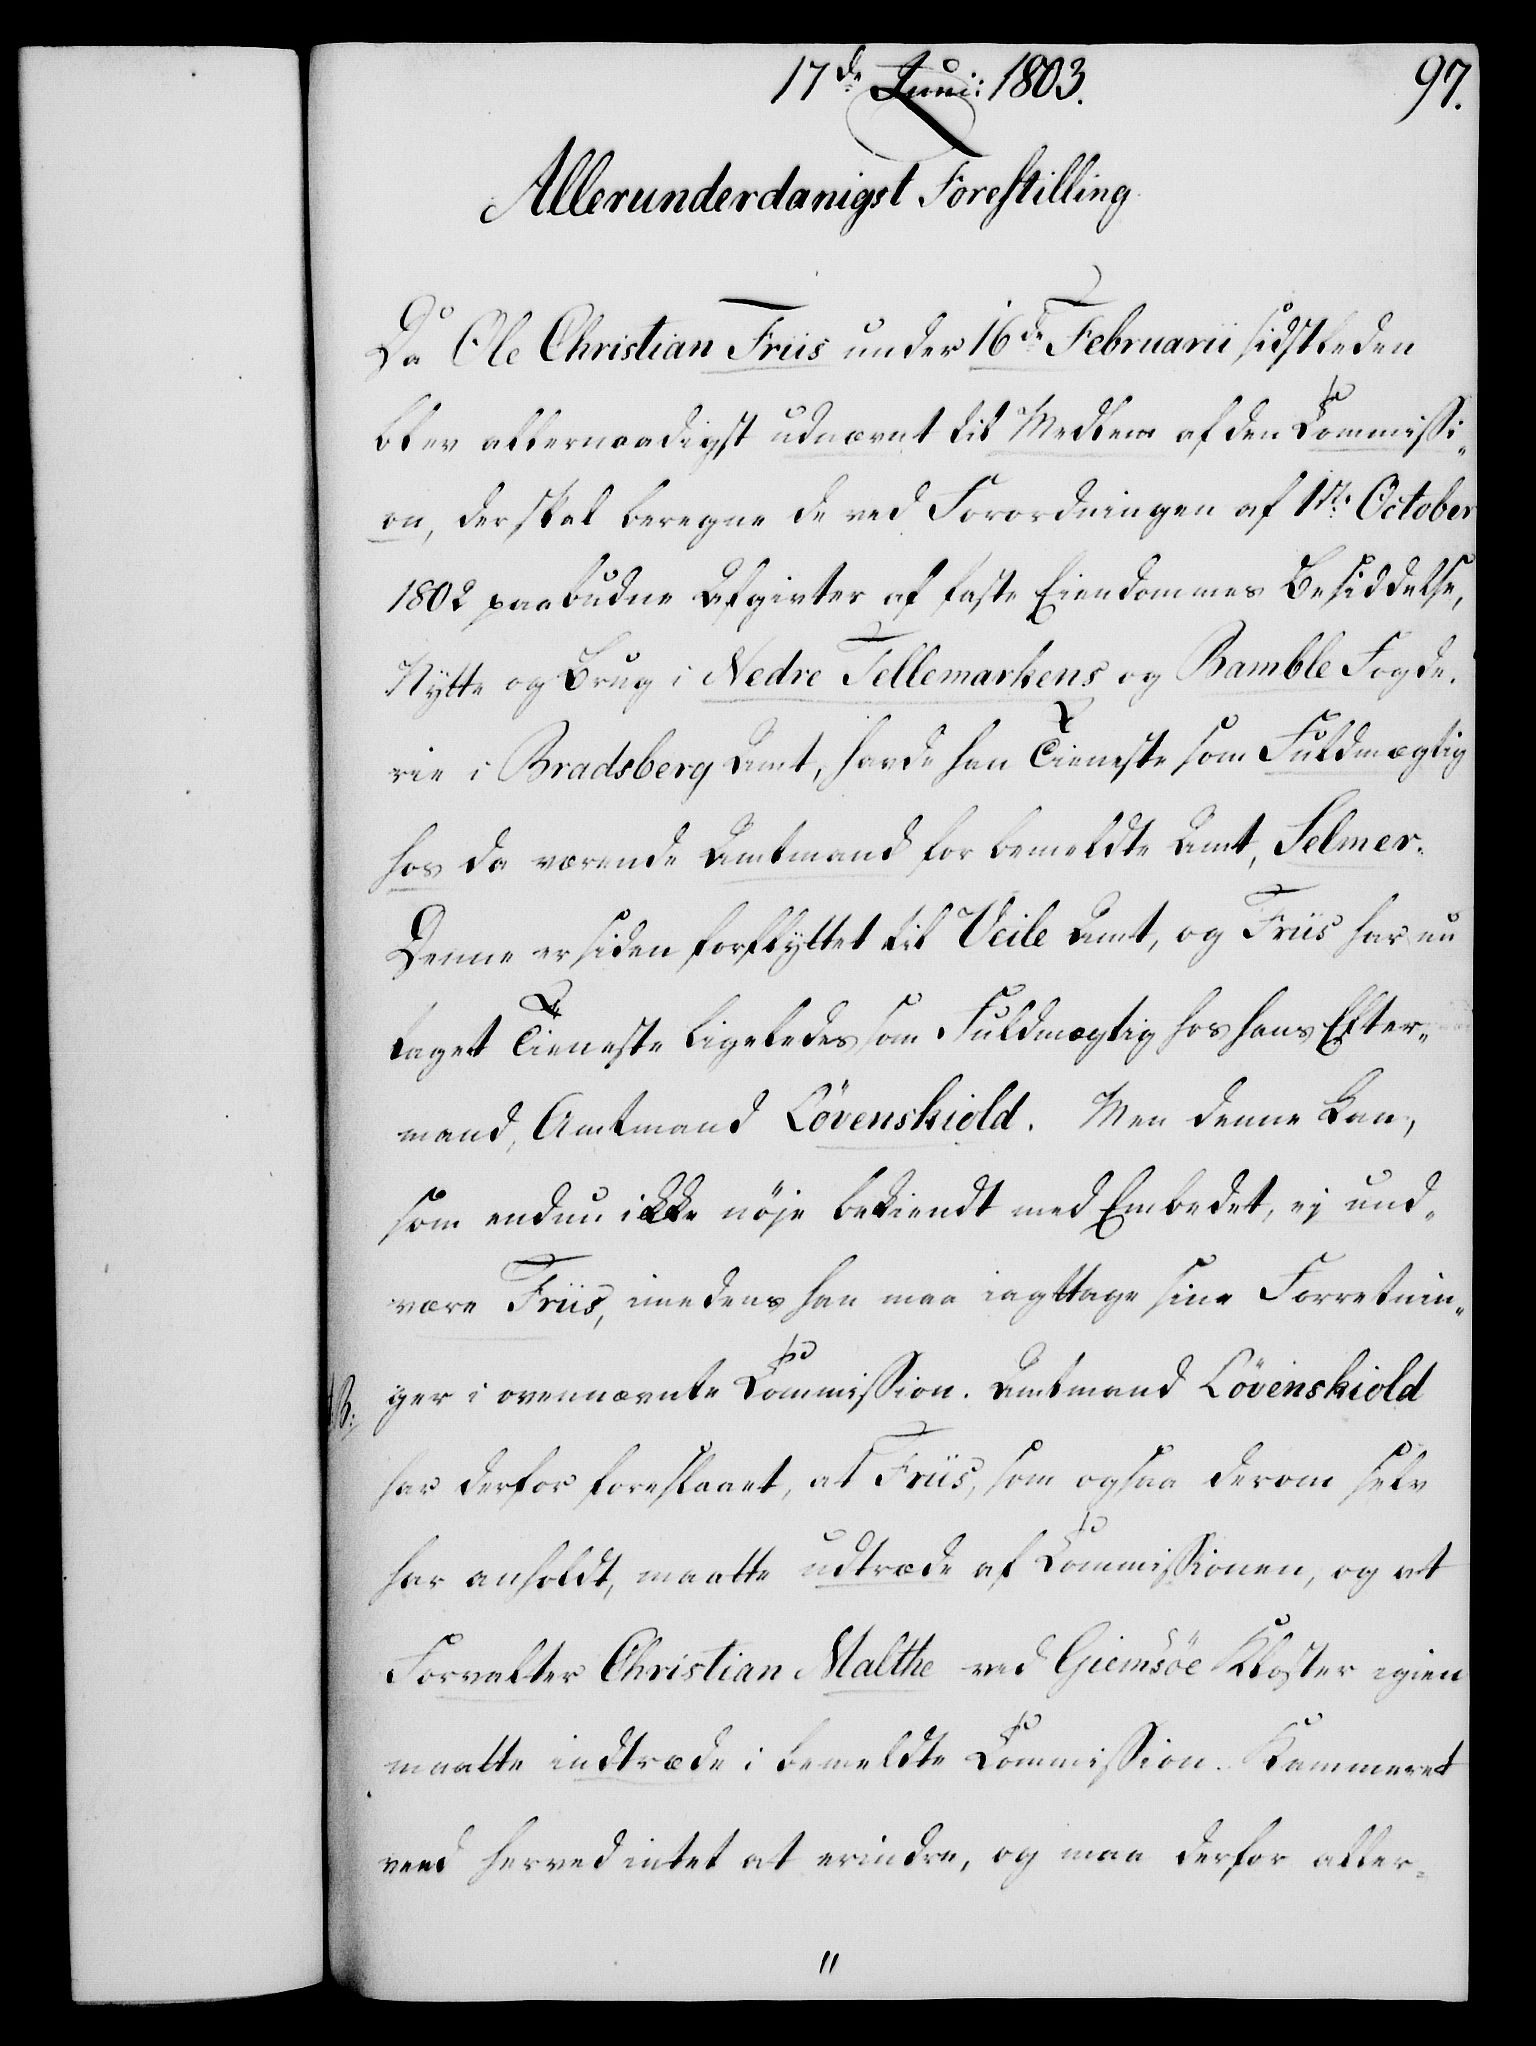 17de Junii: 1803.
97.
Allerunderdanigst Forestilling
Da Ole Christian Friis under 16de Februarii sidstleden
blev allernaadigst udnævnt til Medlem af den Commissi„
on, der skal beregne de ved Forordningen af 1ste October
1802 paabudne Afgivter af faste Eiendommes Besiddelse,
Nytte og Brug i Nedre Tellemarkens og Bamble Fogde„
rie i Bradsberg Amt, havde han Tieneste som Fuldmægtig
hos da værende Amtmand for bemeldte Amt, Selmer.
Denne er siden forflyttet til Veile Amt, og Friis har nu
taget Tieneste ligeledes som Fuldmægtig hos hans Efter„
mand, Amtmand Lövenskiold. Men denne kan,
som endnu ikke nöje bekiendt med Embedet, ej und„
være Friis, imedens han maa iagttage sine Forretnin„
ger i ovennævnte Commission. Amtmand Lövenskiold
har derfor foreslaaet, at Friis, som ogsaa derom selv
har anholdt, maatte udtræde af Commissionen, og at
Forvalter Christian Malthe ved Giemsöe Kloster igien
maatte indtræde i bemeldte Commission. Kammeret
veed herved intet at erindre, og maa derfor aller„